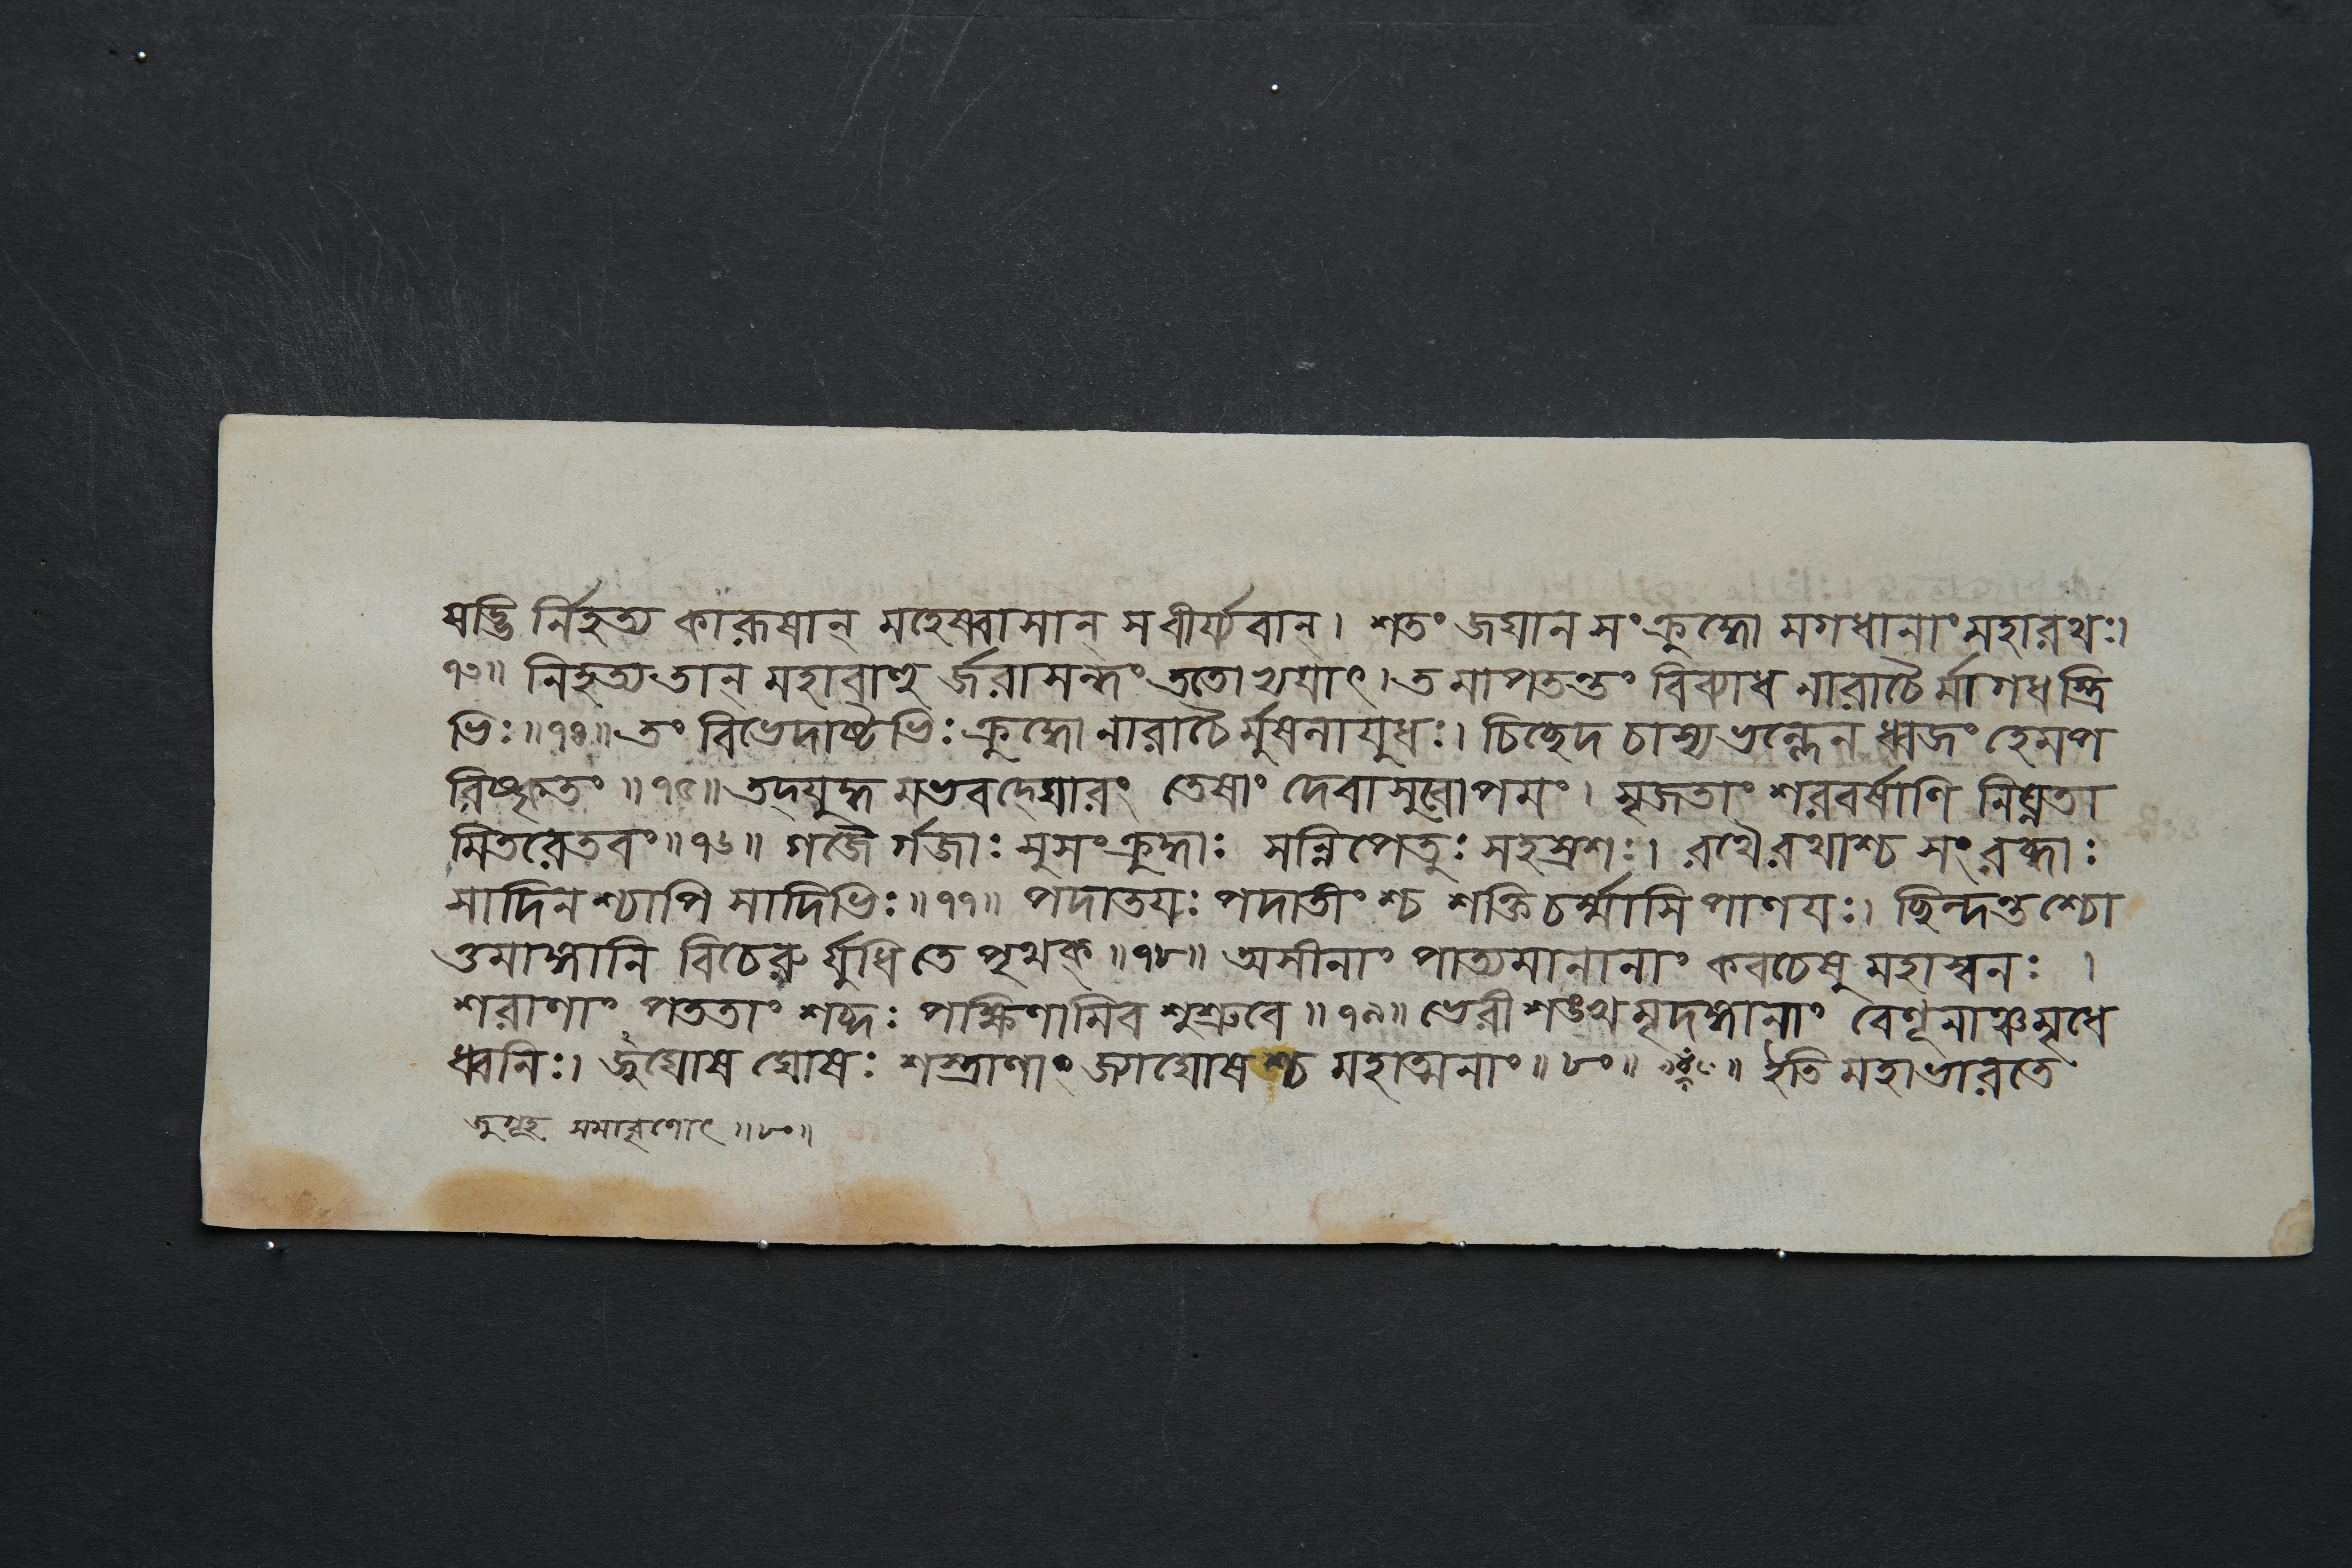 ষড্ভি র্নিহত্য কারূষান্ মহেষ্বাসান্ সবীর্য্যবান্। শতং জঘান সংক্রুদ্ধো মগধানাং মহারথঃ।
৭৩॥ নিহত্য তান্ মহাবাহু র্জরাসন্ধং ততোভ্যয়াৎ। তমাপতন্তং বিব্যাধ নারাচৈ র্মাগধস্ত্রি
ভিঃ॥৭৪॥ তং বিভেদাষ্টভিঃ ক্রুদ্ধো নারাচৈ র্মুষলায়ুধঃ। চিচ্ছেদ চাস্য ভল্লেন ধ্বজং হেমপ
রিষ্কৃতং॥৭৫॥ তদ্যুদ্ধ মভবদ্ঘোরং তেষাং দেবাসুরোপমং। সৃজতাং শরবর্ষাণি নিঘ্নতা
মিতরেতরং॥৭৬॥ গজৈ র্গজাঃ সুসংক্রুদ্ধাঃ সন্নিপেতুঃ সহস্রশঃ। রথৈরথাশ্চ সংরব্ধাঃ
সাদিনশ্চাপি সাদিভিঃ॥৭৭॥ পদাতয়ঃ পদাতীংশ্চ শক্তিচর্ম্মাসিপাণয়ঃ। ছিন্দন্তশ্চো
ত্তমাঙ্গানি বিচেরু র্যুধি তে পৃথক্॥৭৮॥ অসীনাং পাত্যমানানাং কবচেষু মহাস্বনঃ ।
শরাণাং পততাং শব্দঃ পক্ষিণামিব শুশ্রুবে॥৭৯॥ ভেরীশঙ্খমৃদঙ্গানাং বেণূনাঞ্চ মৃধে
ধ্বনিঃ। জুঘোষ ঘোষঃ শস্ত্রাণাং জ্যাঘোষশ্চ মহাত্মনাং॥৮০॥ ॥ ইতি মহাভারতে
॥৮০॥